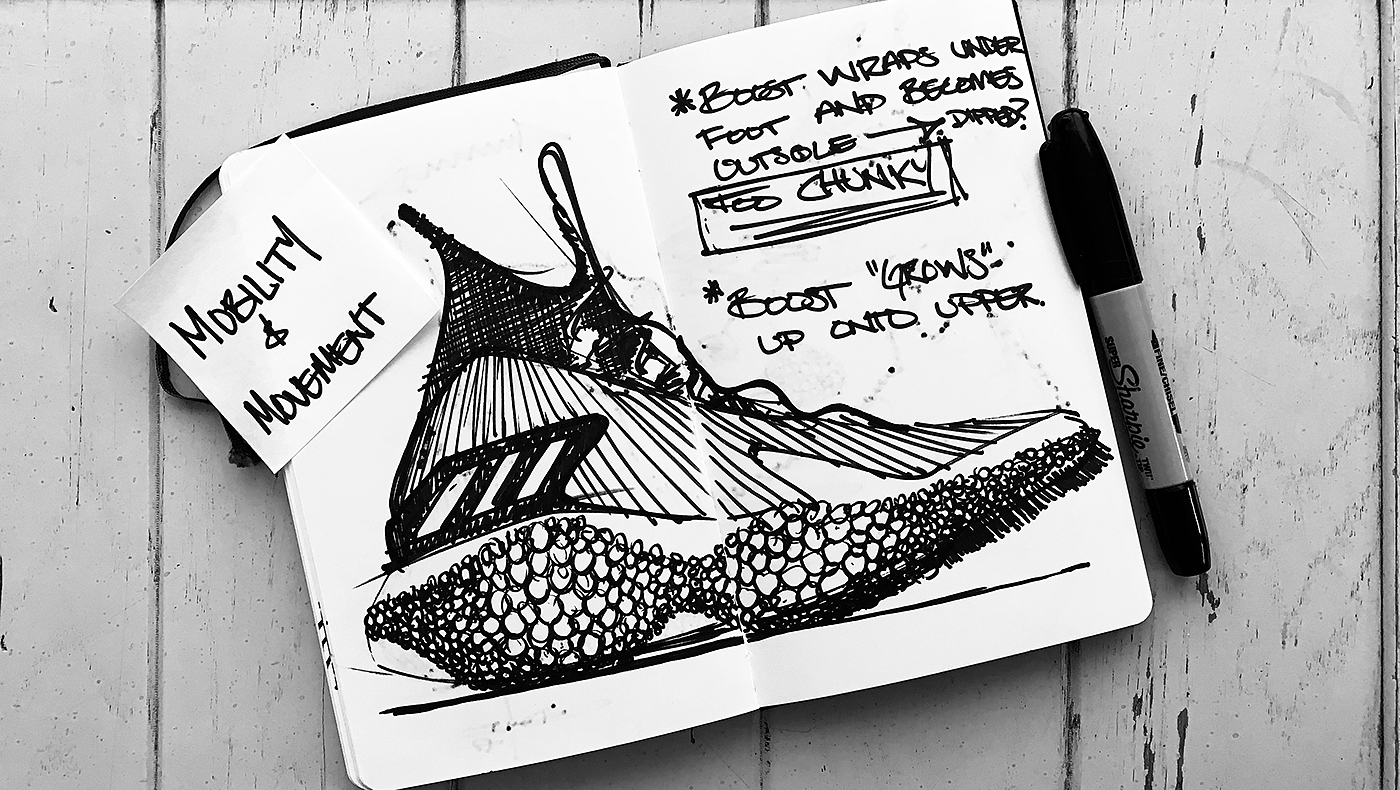 MOBILITY
&
MOVEMENT
*BOOST WRAPS UNDER
FOOT AND BECOMES
OUTSOLE → DIPPED?
TOO CHUNKY
*BOOST "GROWS"
UP ONTO UPPER.
SUPER
Sharpie
TWIN TIP
FINE/CHISEL